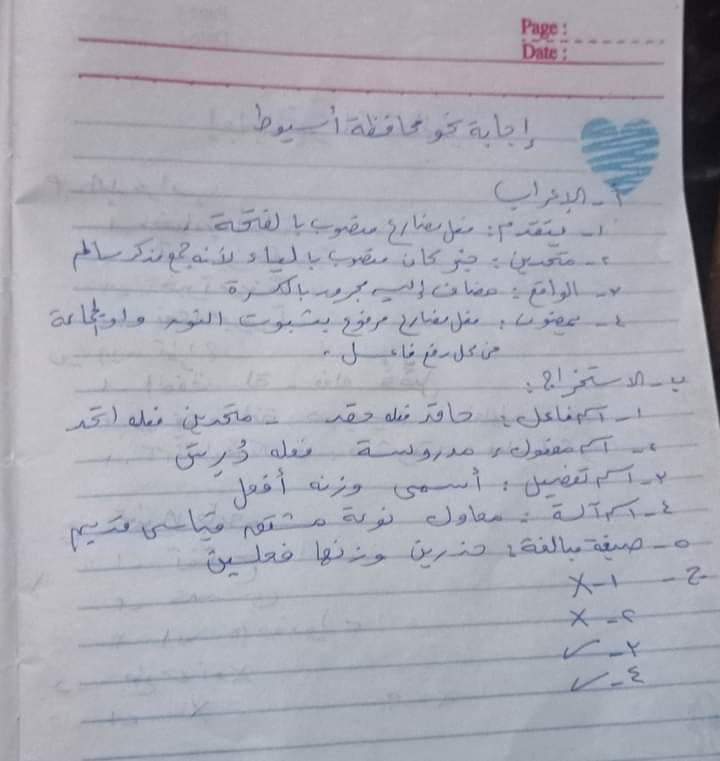 Page :
Date :
إجابة نحو محافظة أسيوط
أ - الإعراب
١- يتقدم : فعل مضارع منصوب بالفتحة
٢- متحدين : خبر كان منصوب بالياء لأنه جمع مذكر سالم
٣- الواقع : مضاف إليه مجرور بالكسرة
٤- يمضون : فعل مضارع مرفوع بثبوت النون واو الجماعة
فى محل رفع فاعل .
ب - الاستخراج :
١- اسم فاعل : حاقد فعله حقد - متحدين فعله اتحد
٢- اسم مفعول : مدروسة فعله دُرِسَ
٣- اسم تفضيل : أسمى وزنه أفعل
٤- اسم آلة : معاول نوعة مشتق قياسى قديم
٥- صيغة مبالغة : حذرين وزنها فعلين
ج - ١- X
٢- X
٣- ✓
٤- ✓